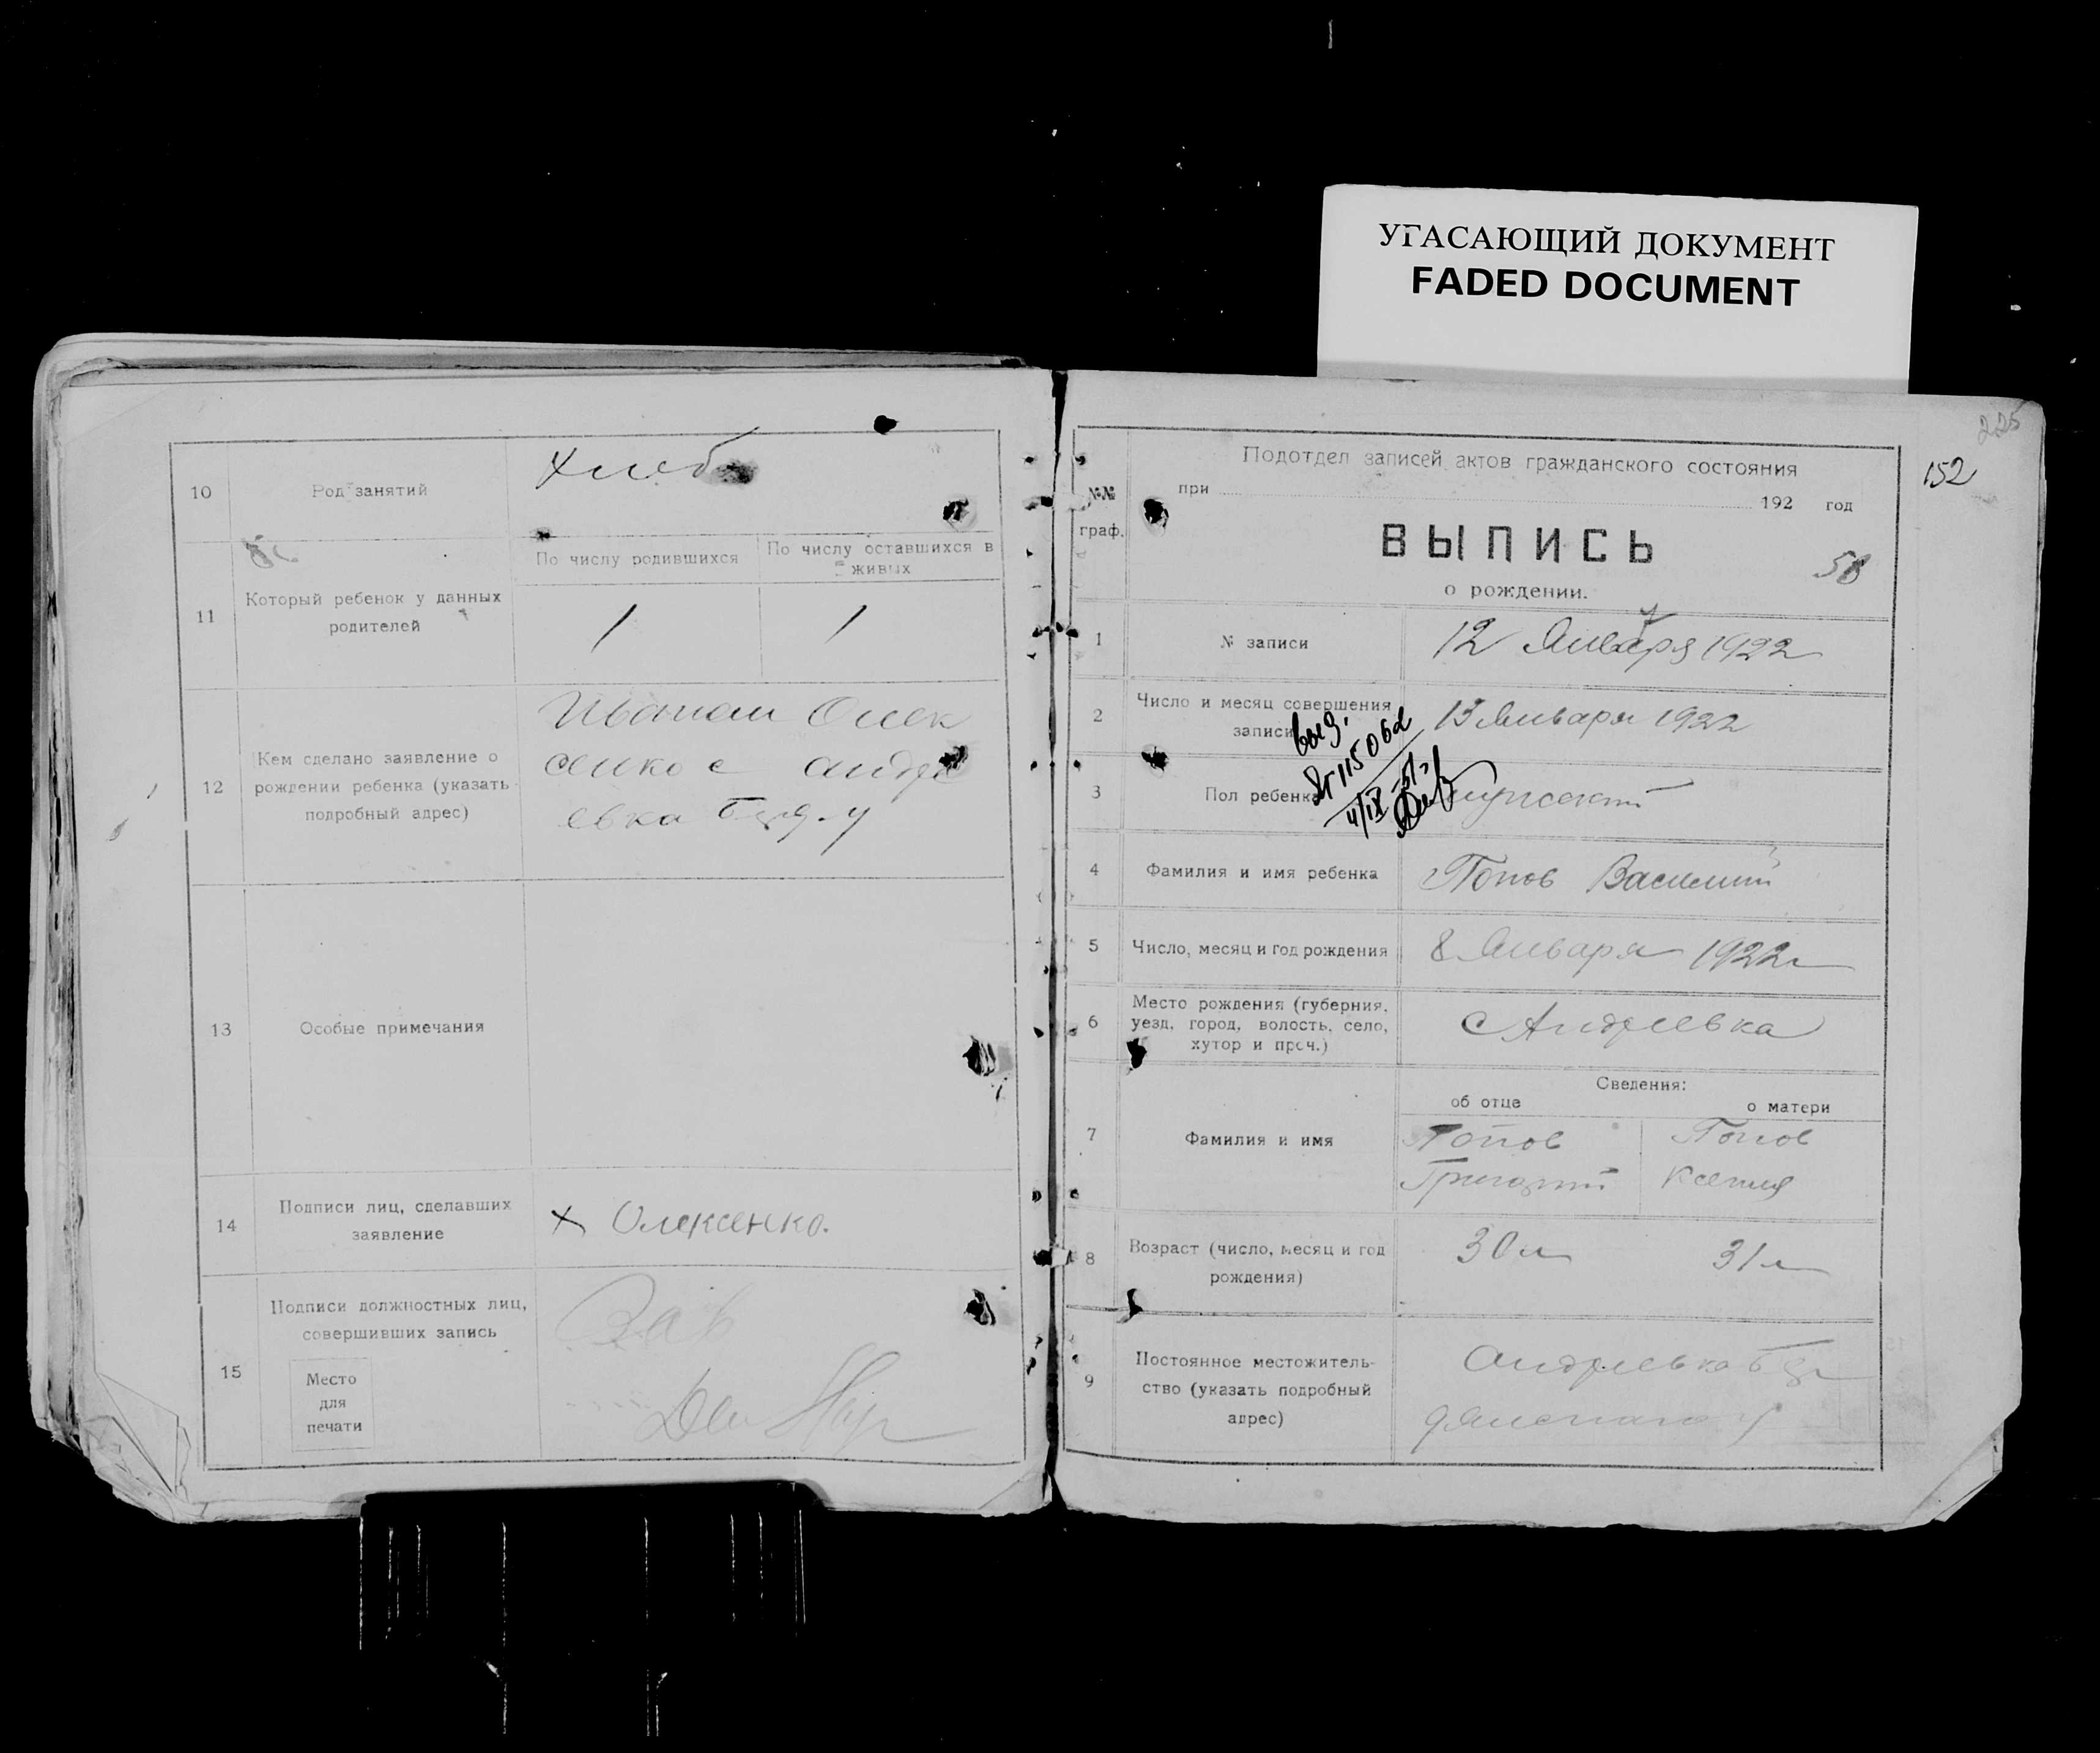 УГАСАЮЩИЙ ДОКУМЕНТ
FADED DOCUMENT
10 Род занятий хлеб
11 Который ребенок у данных
родителей
По числу родившихся
По числу оставшихся в
живых
1 1
12 Кем сделано заявление о
рождении ребенка (указать
подробный адрес)
Иваном Олек
сенко с андре
евка Бердя. у
13 Особые примечания
14 Подписи лиц, сделавших
заявление
х Олексенко.
15 Подписи должностных лиц,
совершивших запись
Место
для
печати
Зав
225
152
№№
граф.
Подотдел записей актов гражданского состояния
при 192 год
ВЫПИСЬ
о рождении.
58
1 № записи 12 Января 1922
2 Число и месяц совершения
записи
13 Января 1922
выд.
115062
4/IX
3 Пол ребенка мужской
4 Фамилия и имя ребенка Попов Василий
5 Число, месяц и год рождения 8 Января 1922г
6 Место рождения (губерния,
уезд, город, волость, село,
хутор и проч.)
с Андреевка
Сведения:
об отце о матери
7 Фамилия и имя
Попов Попов
Григорий Ксения
8 Возраст (число, месяц и год
рождения)
30 л 31 л
9 Постоянное местожитель-
ство (указать подробный
адрес)
Андреевка Бер
дянского у